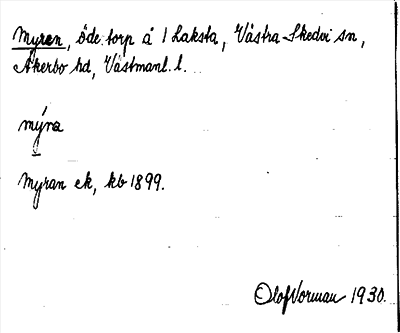 Myren, öde torp å 1 Laksta, Västra Skedvi sn,
Åkerbo hd, Västmanl. l.
mýra
Myran ek, kb 1899.
Olof Vorman 1930.